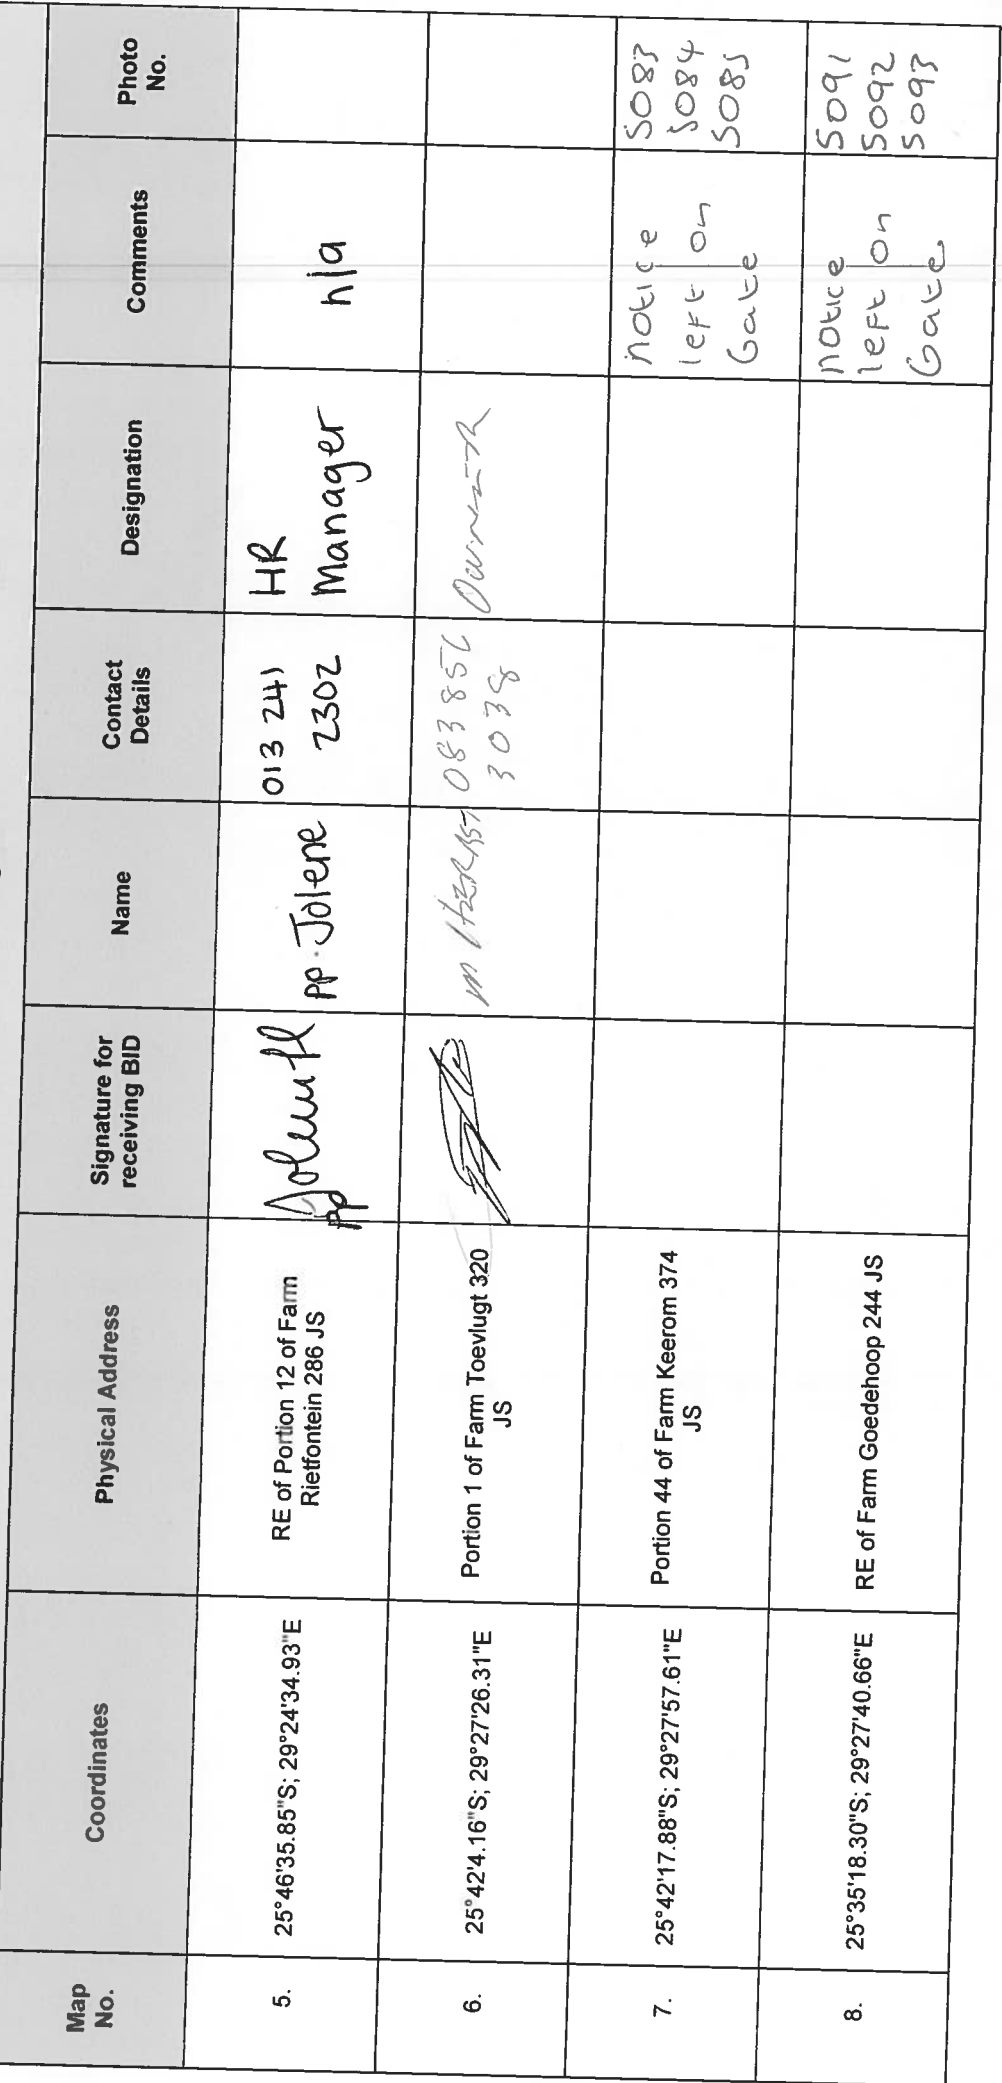 Map No.
Coordinates
Physical Address
Signature for receiving BID
Name
Contact Details
Designation
Comments
Photo No.
5.
25°46'35.85"S; 29°24'34.93"E
RE of Portion 12 of Farm
Rietfontein 286 JS
pp
pp. Jolene
013 241
2302
HR
Manager
n/a
6.
25°42'4.16"S; 29°27'26.31"E
Portion 1 of Farm Toevlugt 320
JS
083 856
3038
Owner
7.
25°42'17.88"S; 29°27'57.61"E
Portion 44 of Farm Keerom 374
JS
notice
left on
Gate
5083
5084
5085
8.
25°35'18.30"S; 29°27'40.66"E
RE of Farm Goedehoop 244 JS
notice
left on
Gate
5091
5092
5093